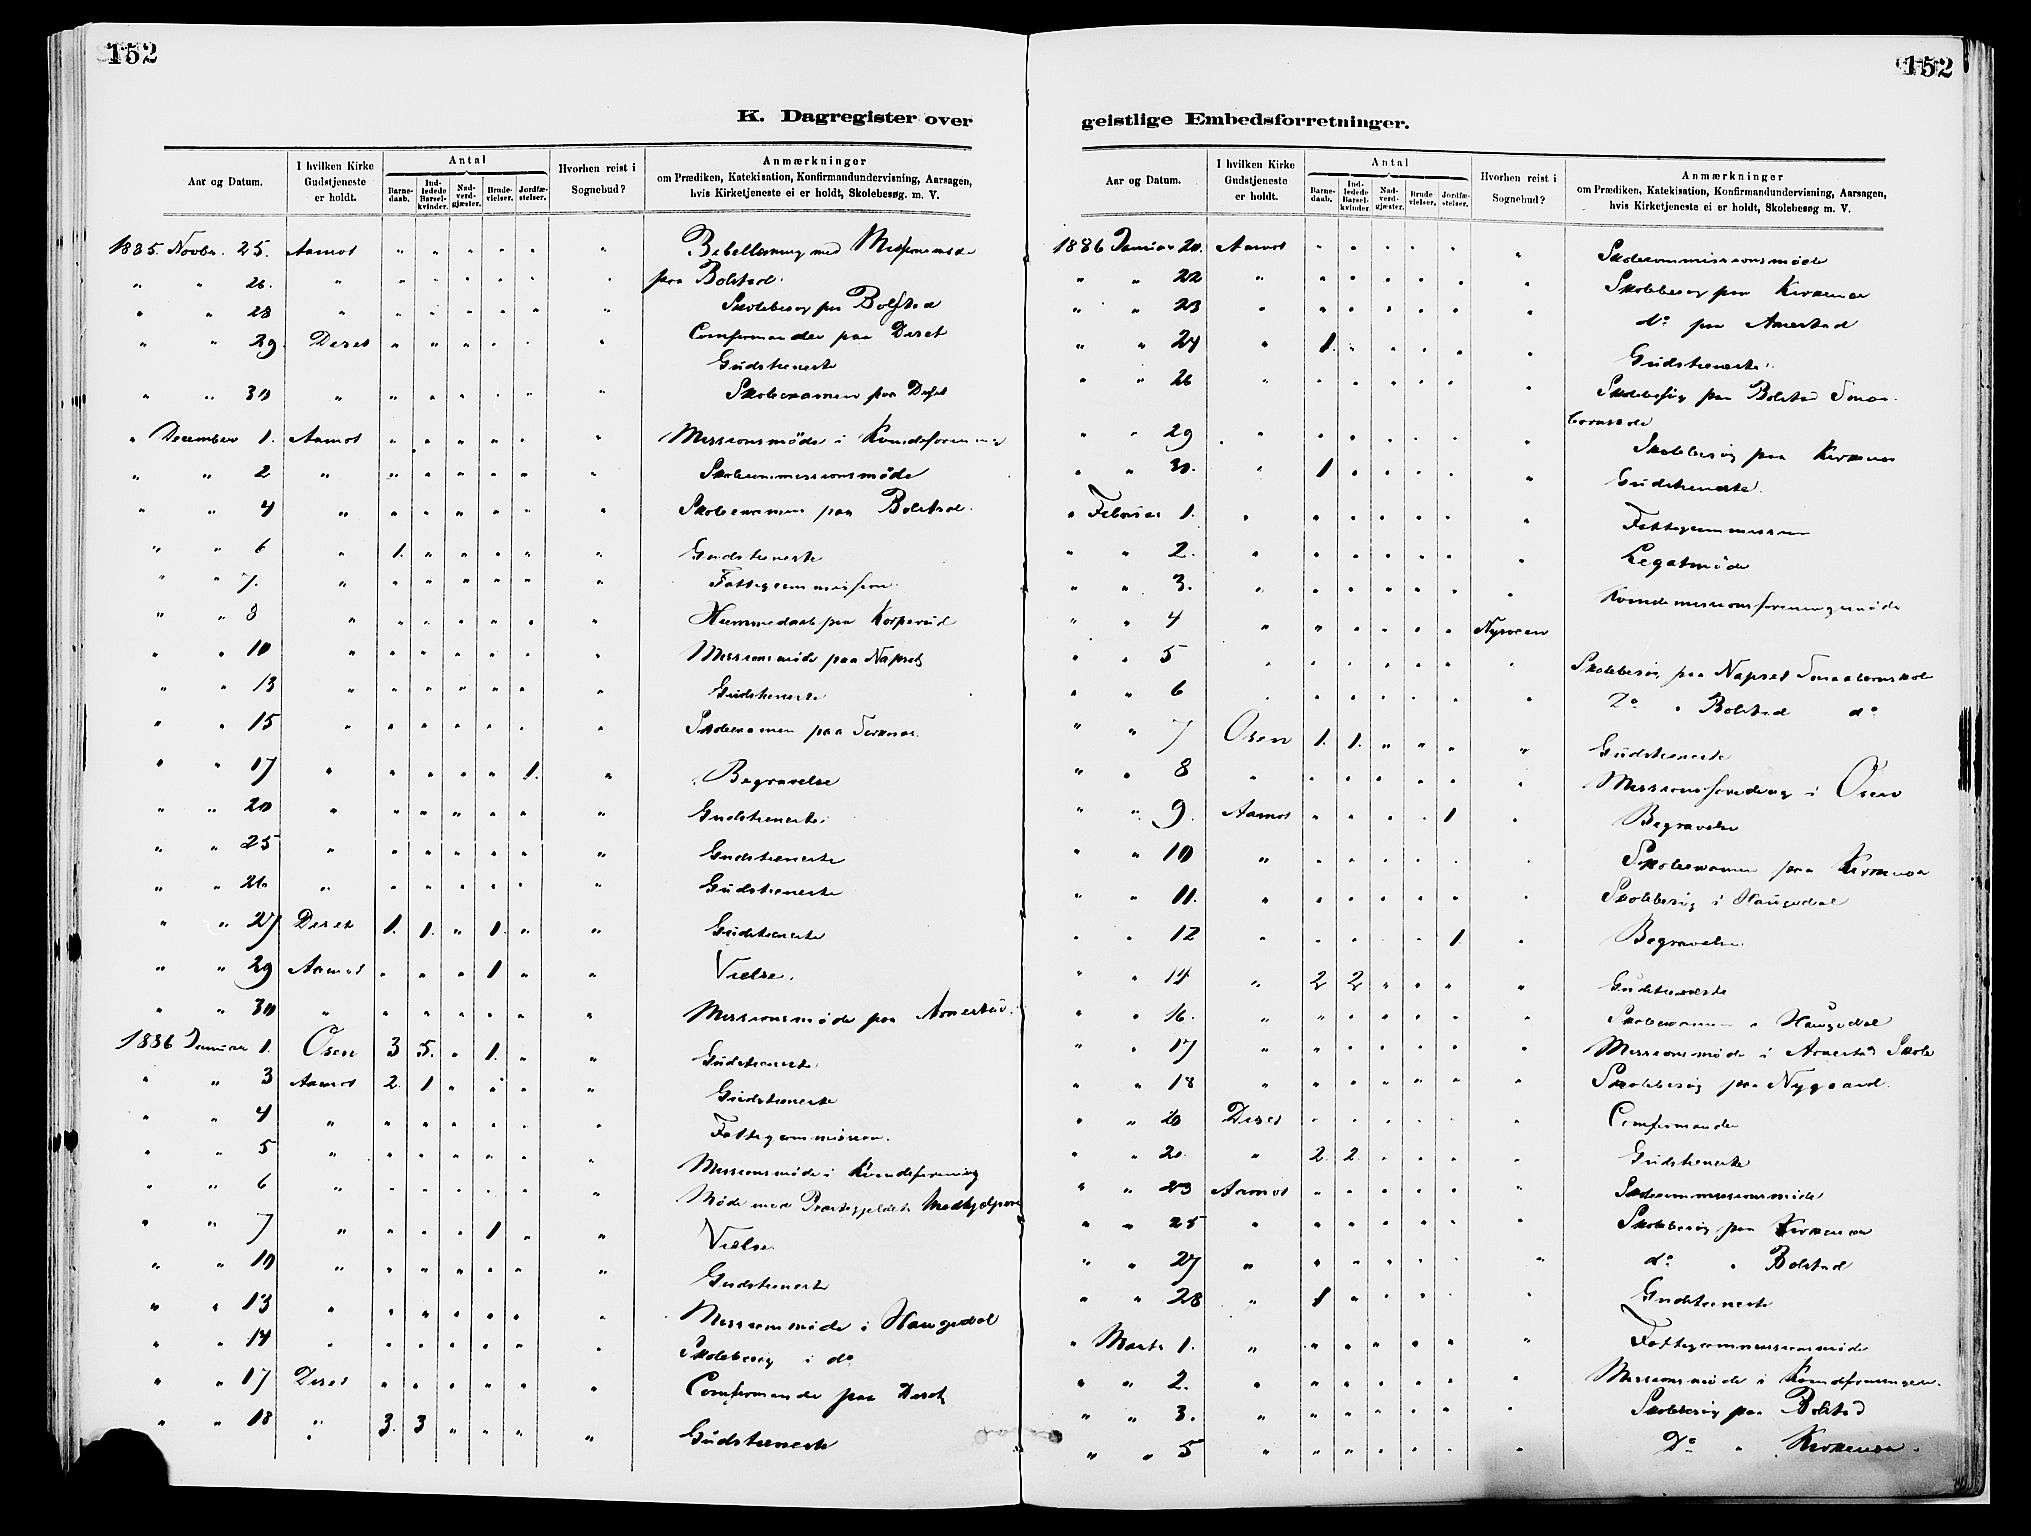 152
152
K. Dagregister over
geistlige Embedsforretninger.
Aar og Datum.
I hvilken Kirke Gudstjeneste er holdt.
Antal
Barnedaab.
Indledede Barselkvinder.
Nadverdgjæster.
Brudevielser.
Jordfæstelser.
Hvorhen reist i Sognebud?
Anmærkninger
om Prædiken, Katekisation, Konfirmandundervisning, Aarsagen,
hvis Kirketjeneste ei er holdt, Skolebesøg. m. V.
1885. Novbr. 25. Aamot " " " " " " Bibellæsning med Missionsmøde
" " 26. " " " " " " " paa Bolstad.
" " 28 " " " " " " " Skolebesøg paa Bolstad
" " 29. Deset " " " " " " Comfirmander paa Deset
Gudstieneste
" " 30 " " " " " " " Skoleexamen paa Deset
" December 1. Aamot " " " " " " Missionsmöde i Kvindeforening
" " 2 " " " " " " " Skolecommissionsmöde
" " 4 " " " " " " " Skoleexamen paa Bolstad.
" " 6 " 1. " " " " " Gudstieneste
" " 7. " " " " " " " Fattigcommission.
" " 8 " " " " " " " Hiemmedaab paa Korperud
" " 10 " " " " " " " Missionsmøde paa Napset
" " 13 " " " " " " " Gudstieneste
" " 15 " " " " " " " Skoleexamen paa
" " 17 " " " " " 1. " Begravelse
" " 20 " " " " " " " Gudstieneste
" " 25 " " " " " " " Gudstieneste
" " 26 " " " " " " " Gudstieneste
" " 27 Deset 1. 1. " 1. " " Gudstieneste
" " 29 Aamot " " " 1 " " Vielse.
" " 30 " " " " " " " Missionsmøde paa Arnestad.
1886 Januar 1. Osen 3 5. " 1. " " Gudstieneste
" " 3 Aamot 2. 1 " " " " Gudstieneste
" " 4 " " " " " " " Fattigcommission.
" " 5 " " " " " " " Missionsmöde i Kvindeforening
" " 6 " " " " " " " Møde med Præstegjeldets Medhjelpere
" " 7 " " " " 1 " " Vielse
" " 10 " " " " " " " Gudstieneste
" " 13 " " " " " " " Missionsmöde i Haugedal
" " 14 " " " " " " " Skolebesög i do
" " 17 Deset " " " " " " Comfirmander paa Deset
" " 18 " 3. 3 " " " " Gudstieneste
Aar og Datum.
I hvilken Kirke Gudstjeneste er holdt.
Antal
Barnedaab.
Indledede Barselkvinder.
Nadverdgjæster.
Brudevielser.
Jordfæstelser.
Hvorhen reist i Sognebud?
Anmærkninger
om Prædiken, Katekisation, Konfirmandundervisning, Aarsagen,
hvis Kirketjeneste ei er holdt, Skolebesøg m. V.
1886 Januar 20. Aamot " " " " " " Skolecommissionsmöde
" " 22 " " " " " " " Skolebesøg paa Kirkenær
" " 23 " " " " " " " do paa Arnestad
" " 24 " 1. " " " " " Gudstieneste.
" " 26 " " " " " " " Skolebesøg paa Bolstad Smaa-
börnskole
" " 29 " " " " " " " Skolebesøg paa Kirkenær
" " 30. " 1 " " " " " Gudstieneste.
" Februar 1. " " " " " " " Fattigcommission
" " 2. " " " " " " " Legatmöde
" " 3. " " " " " " " Kvindemissionsforeningsmöde
" " 4 " " " " " " Nysveen
" " 5 " " " " " " " Skolebesøg paa Napset Smaabørnskole
" " 6 " " " " " " " Do " Bolstad do
" " 7 Osen 1. 1. " " " " Gudstieneste
" " 8 " " " " " " " Missionsforedrag i Osen
" " 9. Aamot " " " " 1 " Begravelse
" " 10 " " " " " " " Skoleexamen paa Kirkenær
" " 11. " " " " " " " Skolebesøg i Haugedal
" " 12 " " " " " 1 " Begravelse.
" " 14 " 2 2 " " " " Gudstieneste
" " 16. " " " " " " " Skoleexamen i Haugedal
" " 17 " " " " " " " Missionsmöde i Arnestad Skole
" " 18 " " " " " " " Skolebesøg paa Nygaard.
" " 20 Deset " " " " " " Comfirmander
" " 20. " 2. 2. " " " " Gudstieneste
" " 23 Aamot " " " " " " Skolecommissionsmöde
" " 25 " " " " " " " Skolebesøg paa Kirkenær
" " 27 " " " " " " " do " Bolstad
" " 28 " 1 " " " " " Gudstieneste
" Marts 1. " " " " " " " Fattigcommissionsmöde
" " 2. " " " " " " " Missionsmøde i Kvindeforeningen.
" " 3. " " " " " " " Skolebesøg paa Bolstad
" " 5 " " " " " " " Do " Kirkenær.